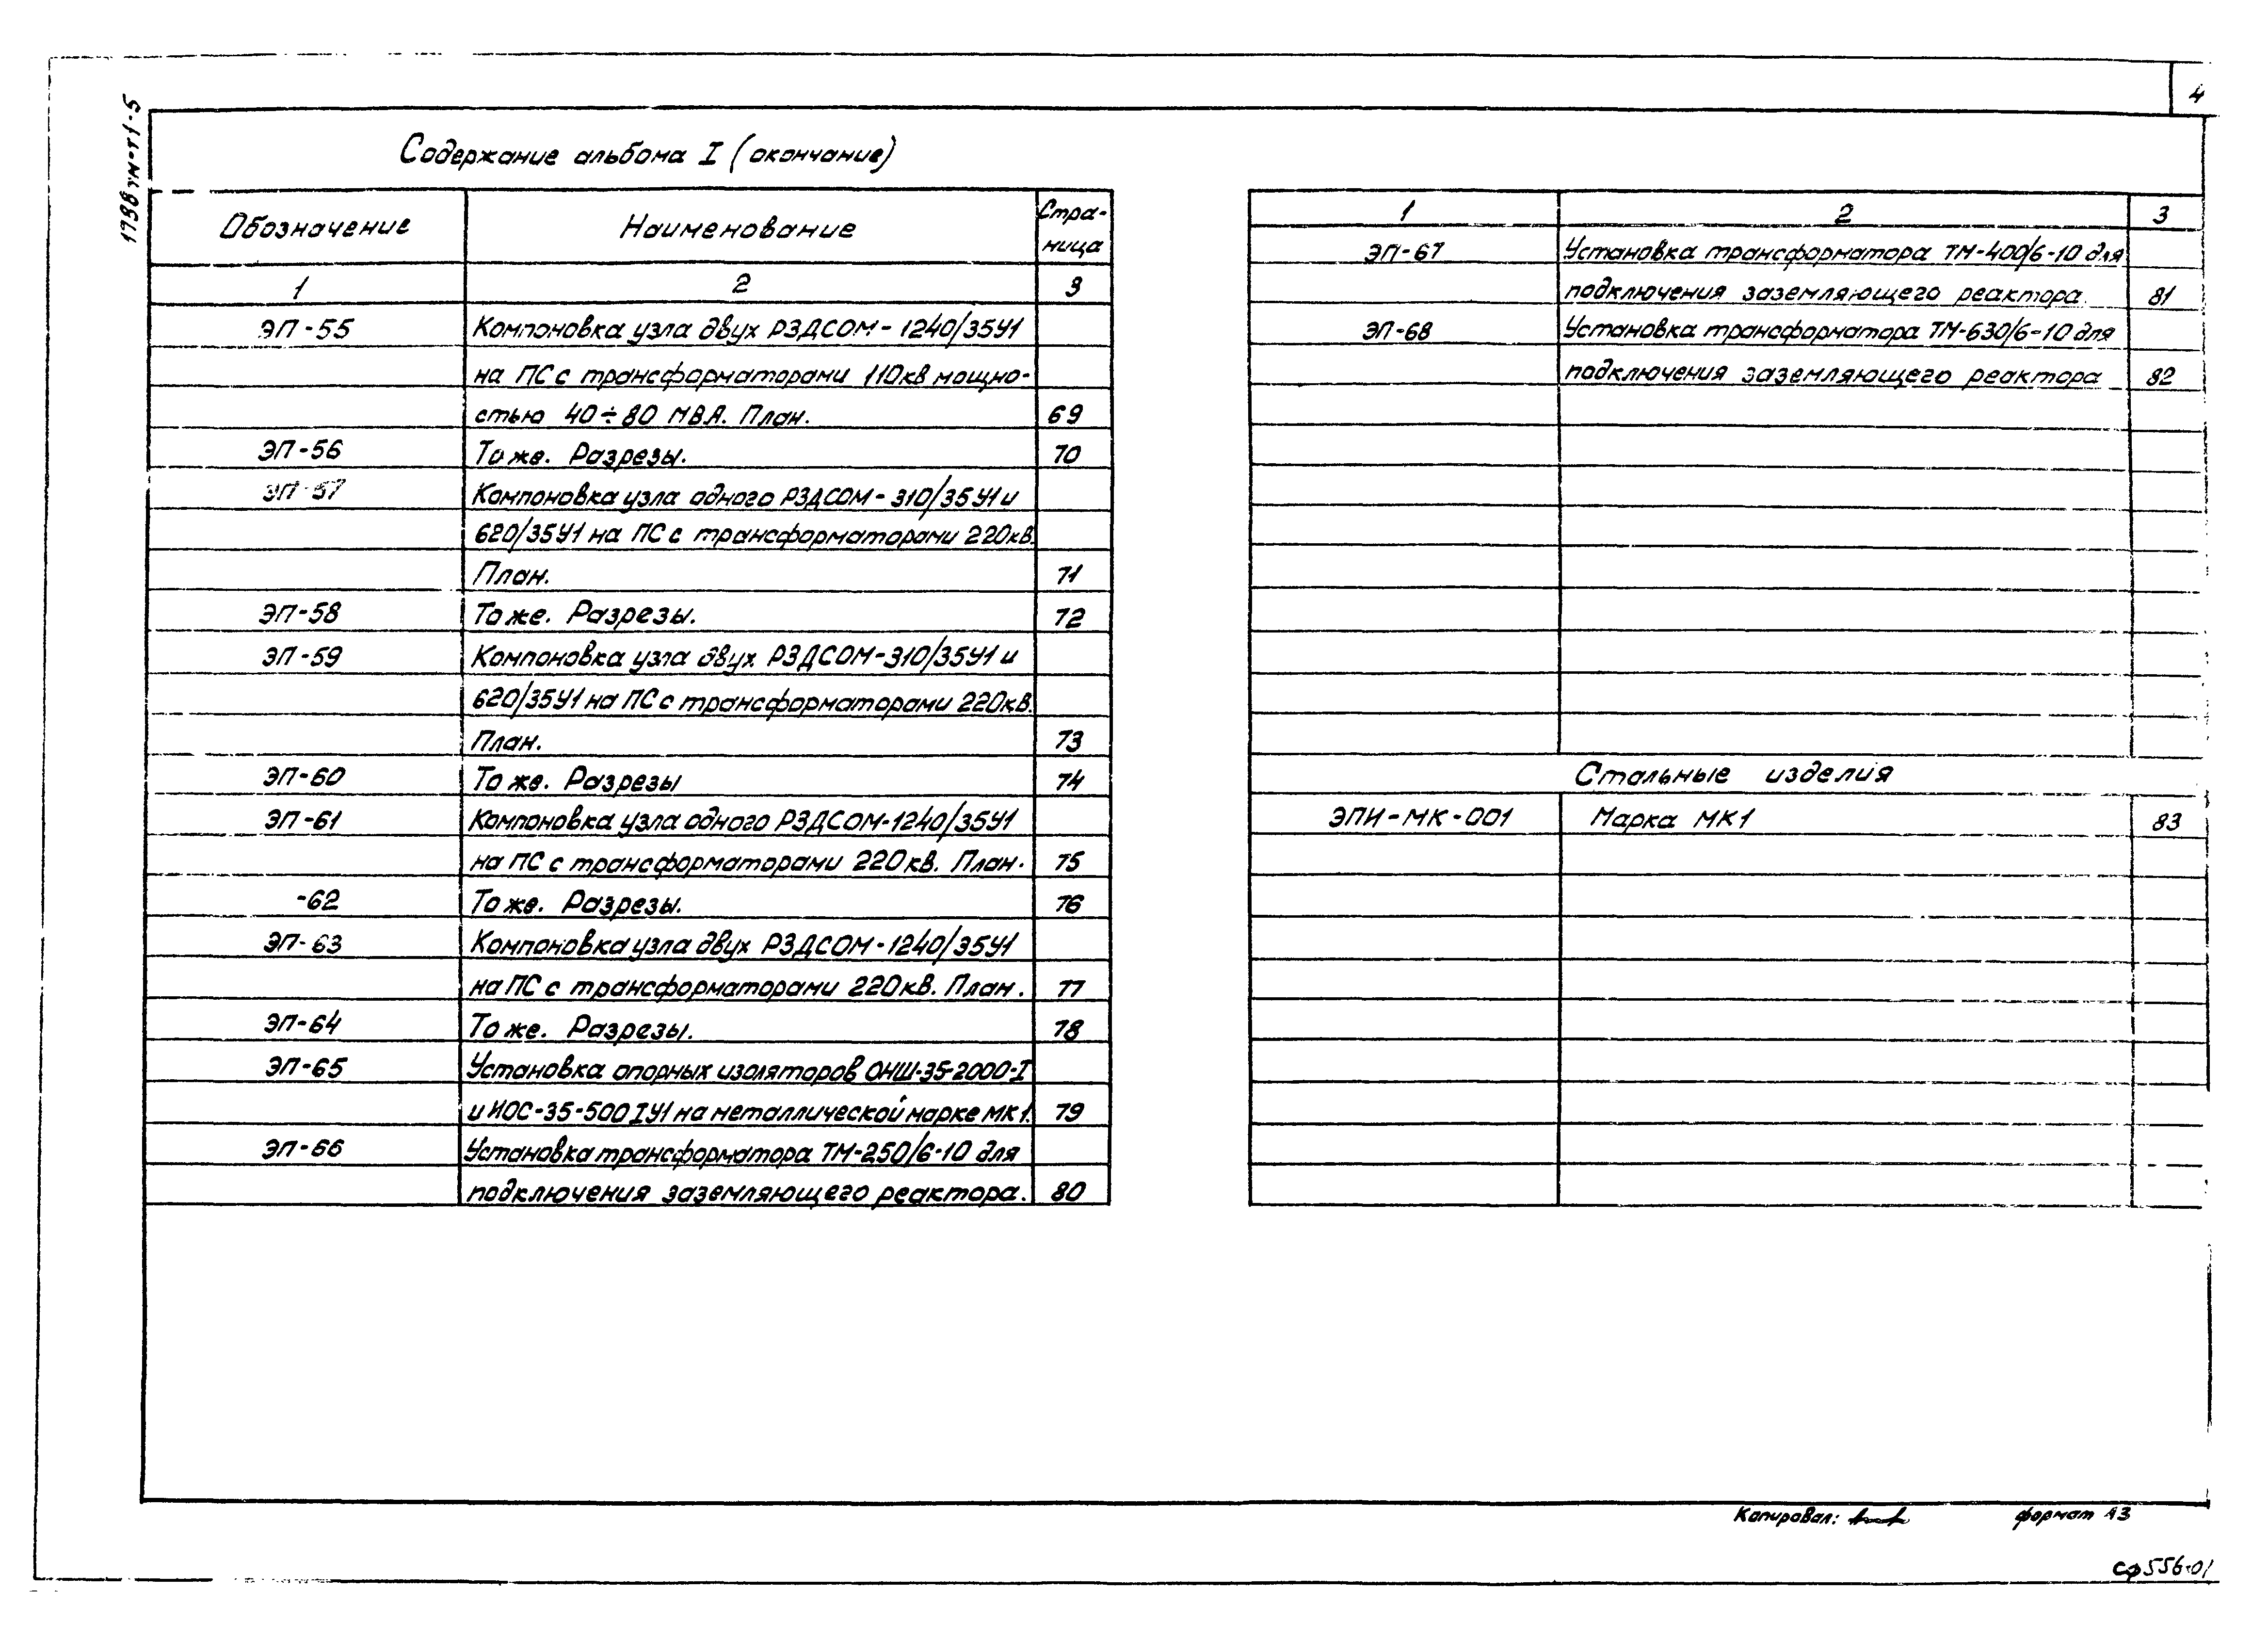 4
1798 тм-т1-5
Содержание альбома I (окончание)
Обозначение Наименование Стра-
ница
1 2 3
ЭП-55 Компоновка узла двух РЗДСОМ-1240/35У1
на ПС с трансформаторами 110кв мощно-
стью 40÷80 МВА. План. 69
ЭП-56 То же. Разрезы. 70
ЭП-57 Компоновка узла одного РЗДСОМ-310/35У1 и
620/35У1 на ПС с трансформаторами 220кв.
План. 71
ЭП-58 То же. Разрезы. 72
ЭП-59 Компоновка узла двух РЗДСОМ-310/35У1 и
620/35У1 на ПС с трансформаторами 220кв.
План. 73
ЭП-60 То же. Разрезы 74
ЭП-61 Компоновка узла одного РЗДСОМ-1240/35У1
на ПС с трансформаторами 220кв. План. 75
-62 То же. Разрезы. 76
ЭП-63 Компоновка узла двух РЗДСОМ-1240/35У1
на ПС с трансформаторами 220кв. План. 77
ЭП-64 То же. Разрезы. 78
ЭП-65 Установка опорных изоляторов ОНШ-35-2000-I
и ИОС-35-500 I У1 на металлической марке МК1. 79
ЭП-66 Установка трансформатора ТМ-250/6-10 для
подключения заземляющего реактора. 80
1 2 3
ЭП-67 Установка трансформатора ТМ-400/6-10 для
подключения заземляющего реактора. 81
ЭП-68 Установка трансформатора ТМ-630/6-10 для
подключения заземляющего реактора 82
Стальные изделия
ЭПИ-МК-001 Марка МК1 83
Копировал: формат А3
сф556-01